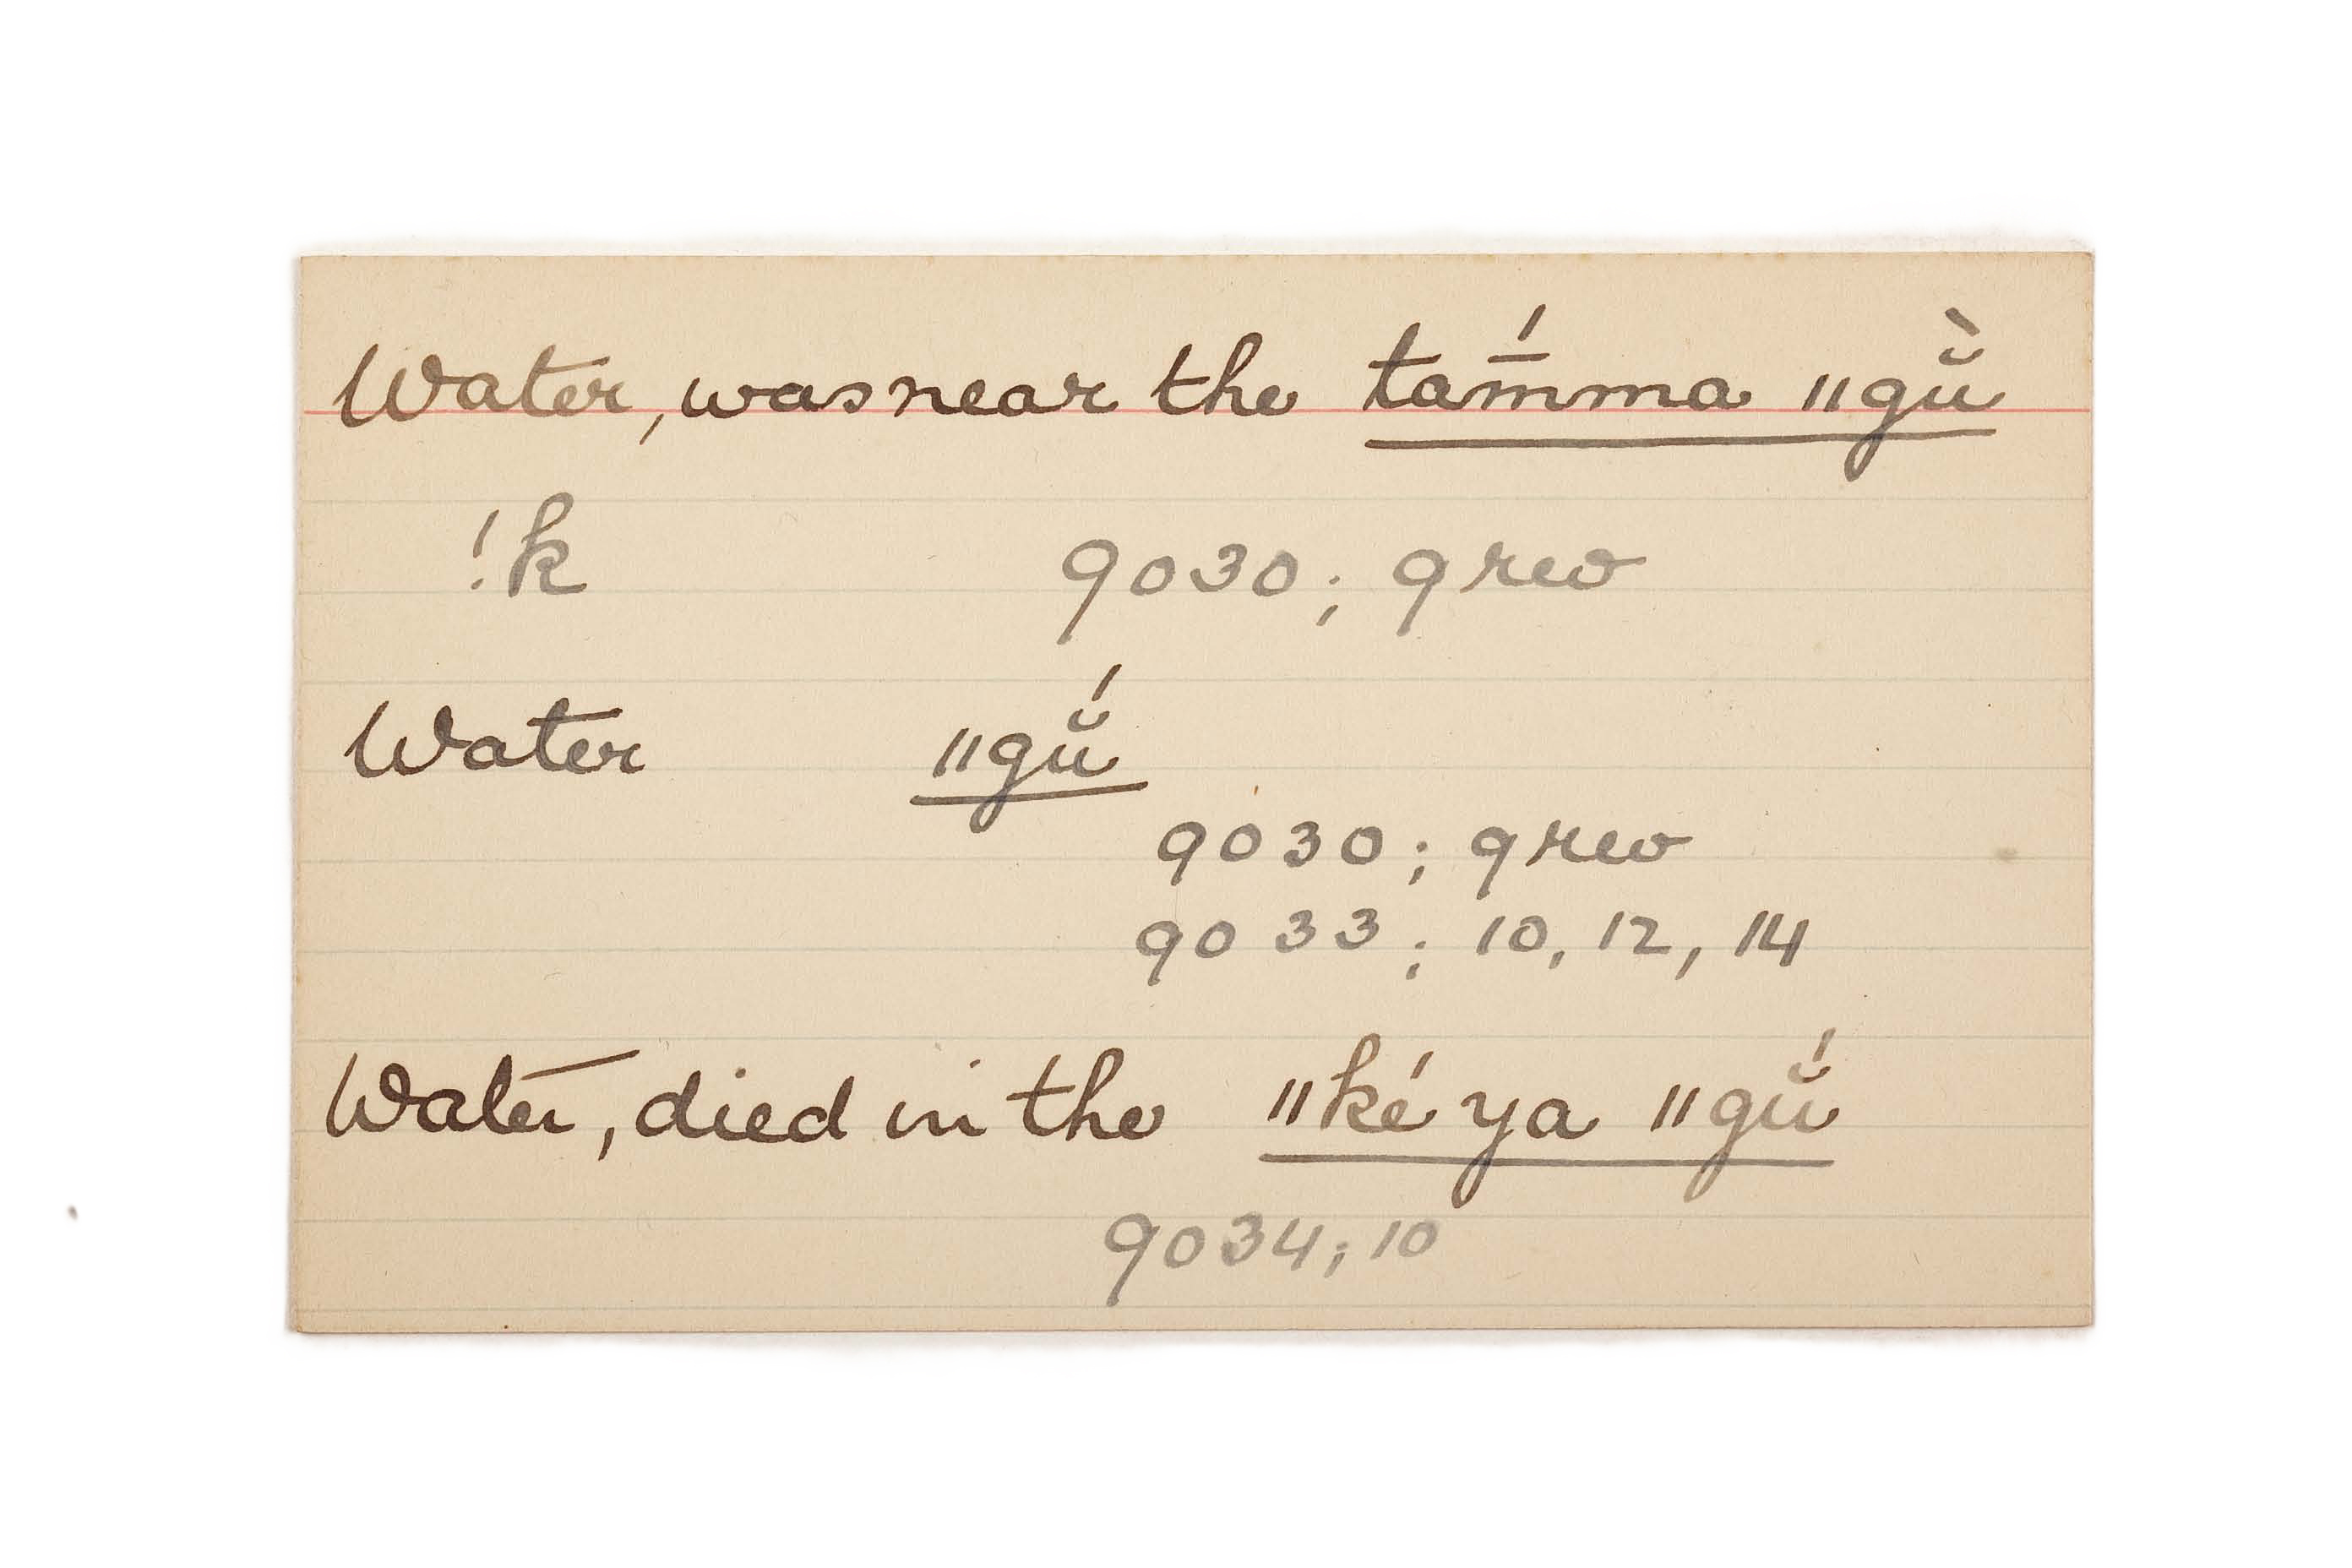 Water, was near the tam̄́ma ‖gŭ̀
!k 9030; 9 rev
Water ‖gŭ́
9030; 9 rev
9033; 10, 12, 14
Water, died in the ‖ké ya ‖gŭ́
9034; 10